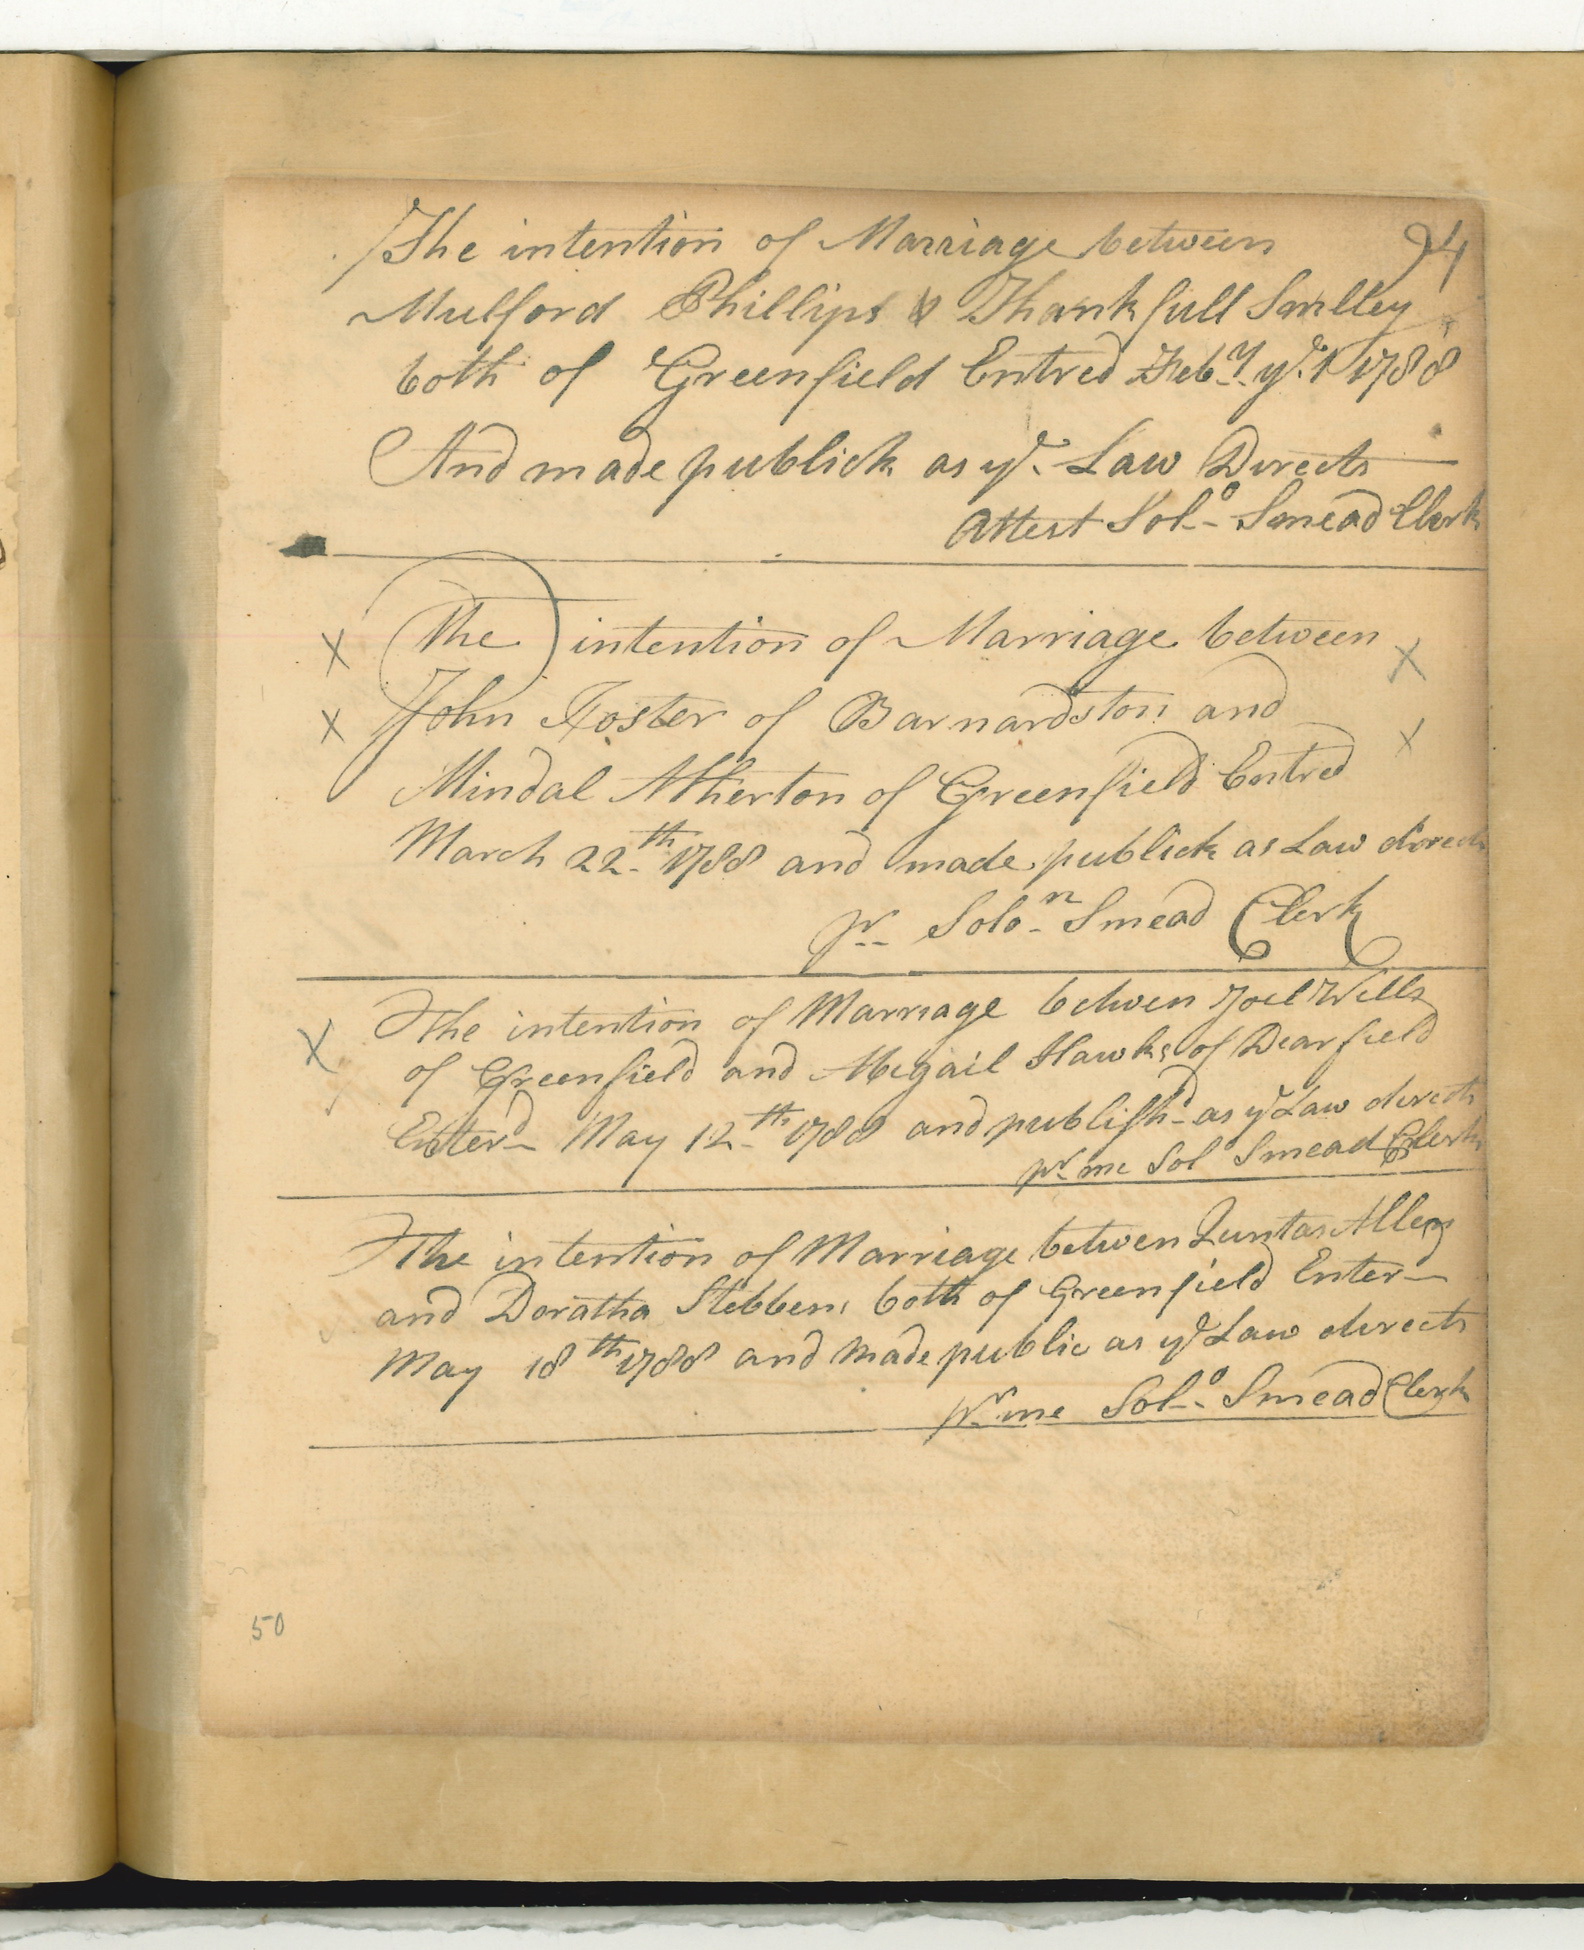 The intention of Marriage between
94
Mulford Phillips & Thankfull Smilley
both of Greenfield Entred Feb.y ye. 1 1788
And made publick as ye. Law Directs
Attest Sol.o Smead Clerk
X The intention of Marriage between X
X John Foster of Barnardston and X
Mindal Atherton of Greenfield Entred
March 22th 1788 and made publick as Law directs
pr Solo.n Smead Clerk
X The intention of Marriage betwen Joel Wells
of Greenfield and Abigail Hawks of Dearfield
Enterd May 12th 1788 and publishd as ye Law directs
pr me Solo Smead Clerk
The intention of Marriage betwen Quntas Allen
and Doratha Stebbens both of Greenfield Enter
May 18th 1788 and made public as ye Law directs
pr me Sol.o Smead Clerk
50